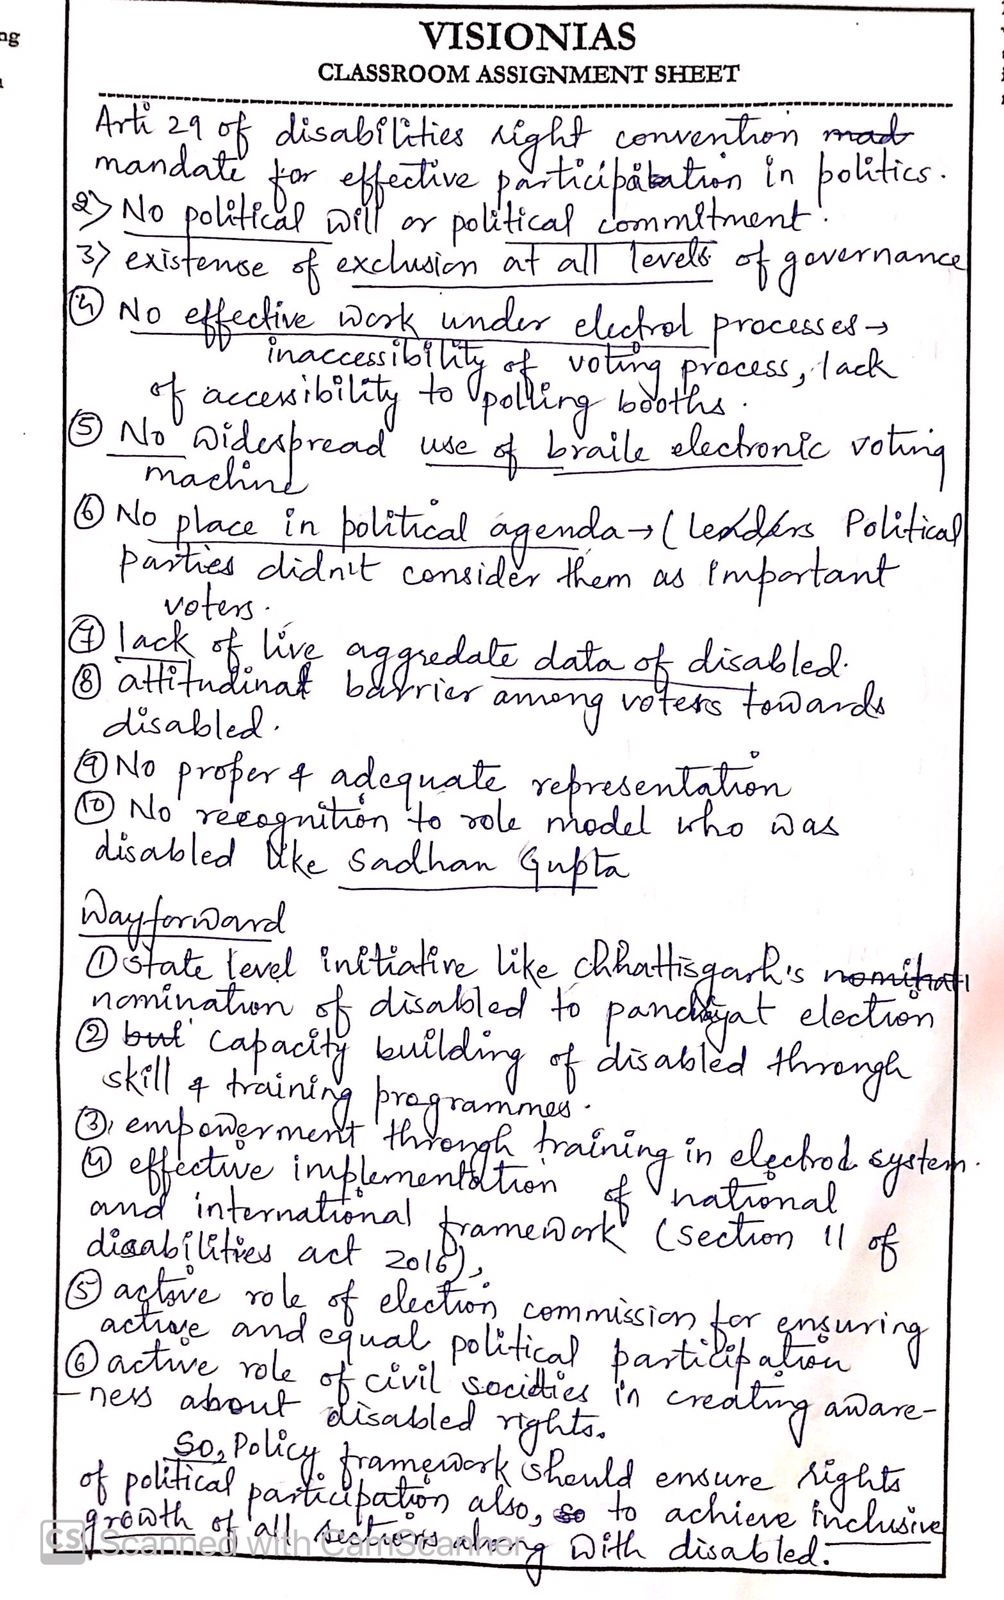 ng
VISIONIAS
CLASSROOM ASSIGNMENT SHEET
Arti 29 of disabilities right convention mad
mandate for effective participation in politics.
2) No political will or political commitment.
3) existense of exclusion at all levels of governance
④ No effective work under electrol processes →
inaccessibility of voting process, lack
of accessibility to polling booths.
⑤ No widespread use of braile electronic voting
machine
⑥ No place in political agenda → (leaders Political
parties didn't consider them as important
voters.
⑦ lack of live aggredate data of disabled.
⑧ attitudinal barrier among voters towards
disabled.
⑨ No proper & adequate representation
⑩ No recognition to role model who was
disabled like Sadhan Gupta
Wayforward
① state level initiative like chhattisgarh's nominati
nomination of disabled to panchayat election
② but capacity building of disabled through
skill & training programmes.
③ empowerment through training in electrol system.
④ effective implementation of national
and international framework (section 11 of
disabilities act 2016),
⑤ active role of election commission for ensuring
active and equal political participation
⑥ active role of civil societies in creating aware-
-ness about disabled rights.
So, Policy framework should ensure rights
of political participation also, so to achieve inclusive
growth of all sections along with disabled.
CS Scanned with CamScanner